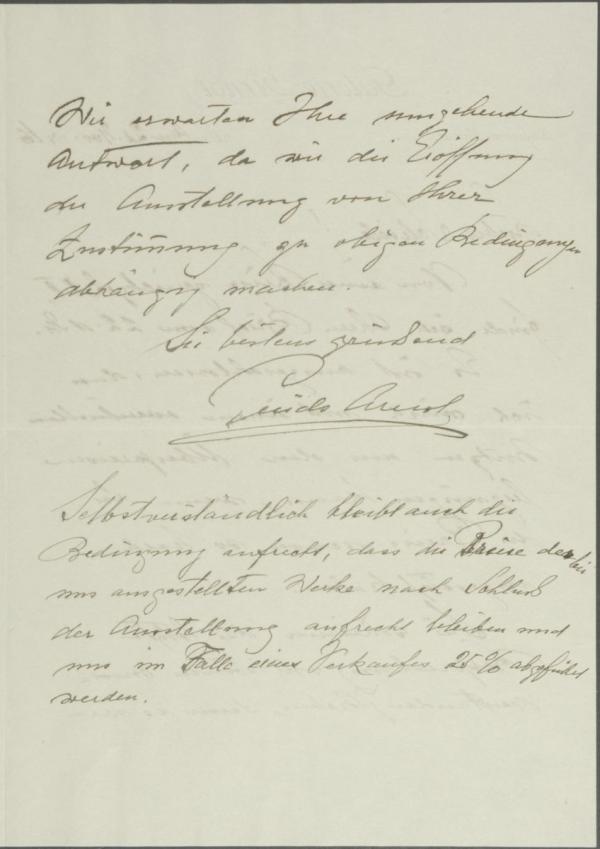 Wir erwarten Ihre umgehende
Antwort, da wir die Eröffnung
der Ausstellung von Ihrer
Zustimmung zu obigen Bedingungen
abhängig machen.
Sie bestens grüssend
Guido Arnot
Selbstverständlich bleibt auch die
Bedingung aufrecht, dass die Preise der bei
uns ausgestellten Werke nach Schluß
der Ausstellung aufrecht bleiben und
uns im Falle eines Verkaufes 25 %
werden.